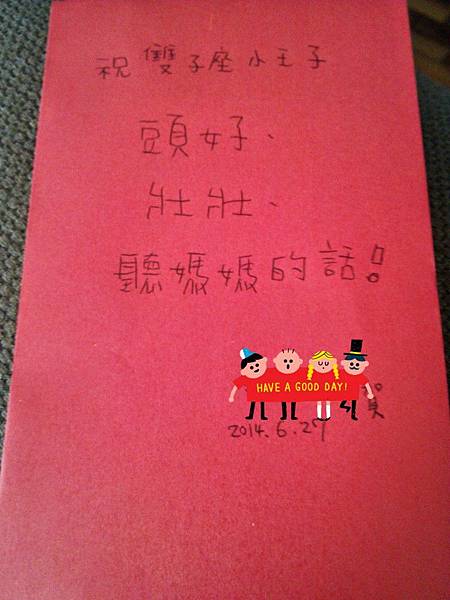 祝雙子座小王子
頭好、
壯壯、
聽媽媽的話!
HAVE A GOOD DAY!
2014.6.27